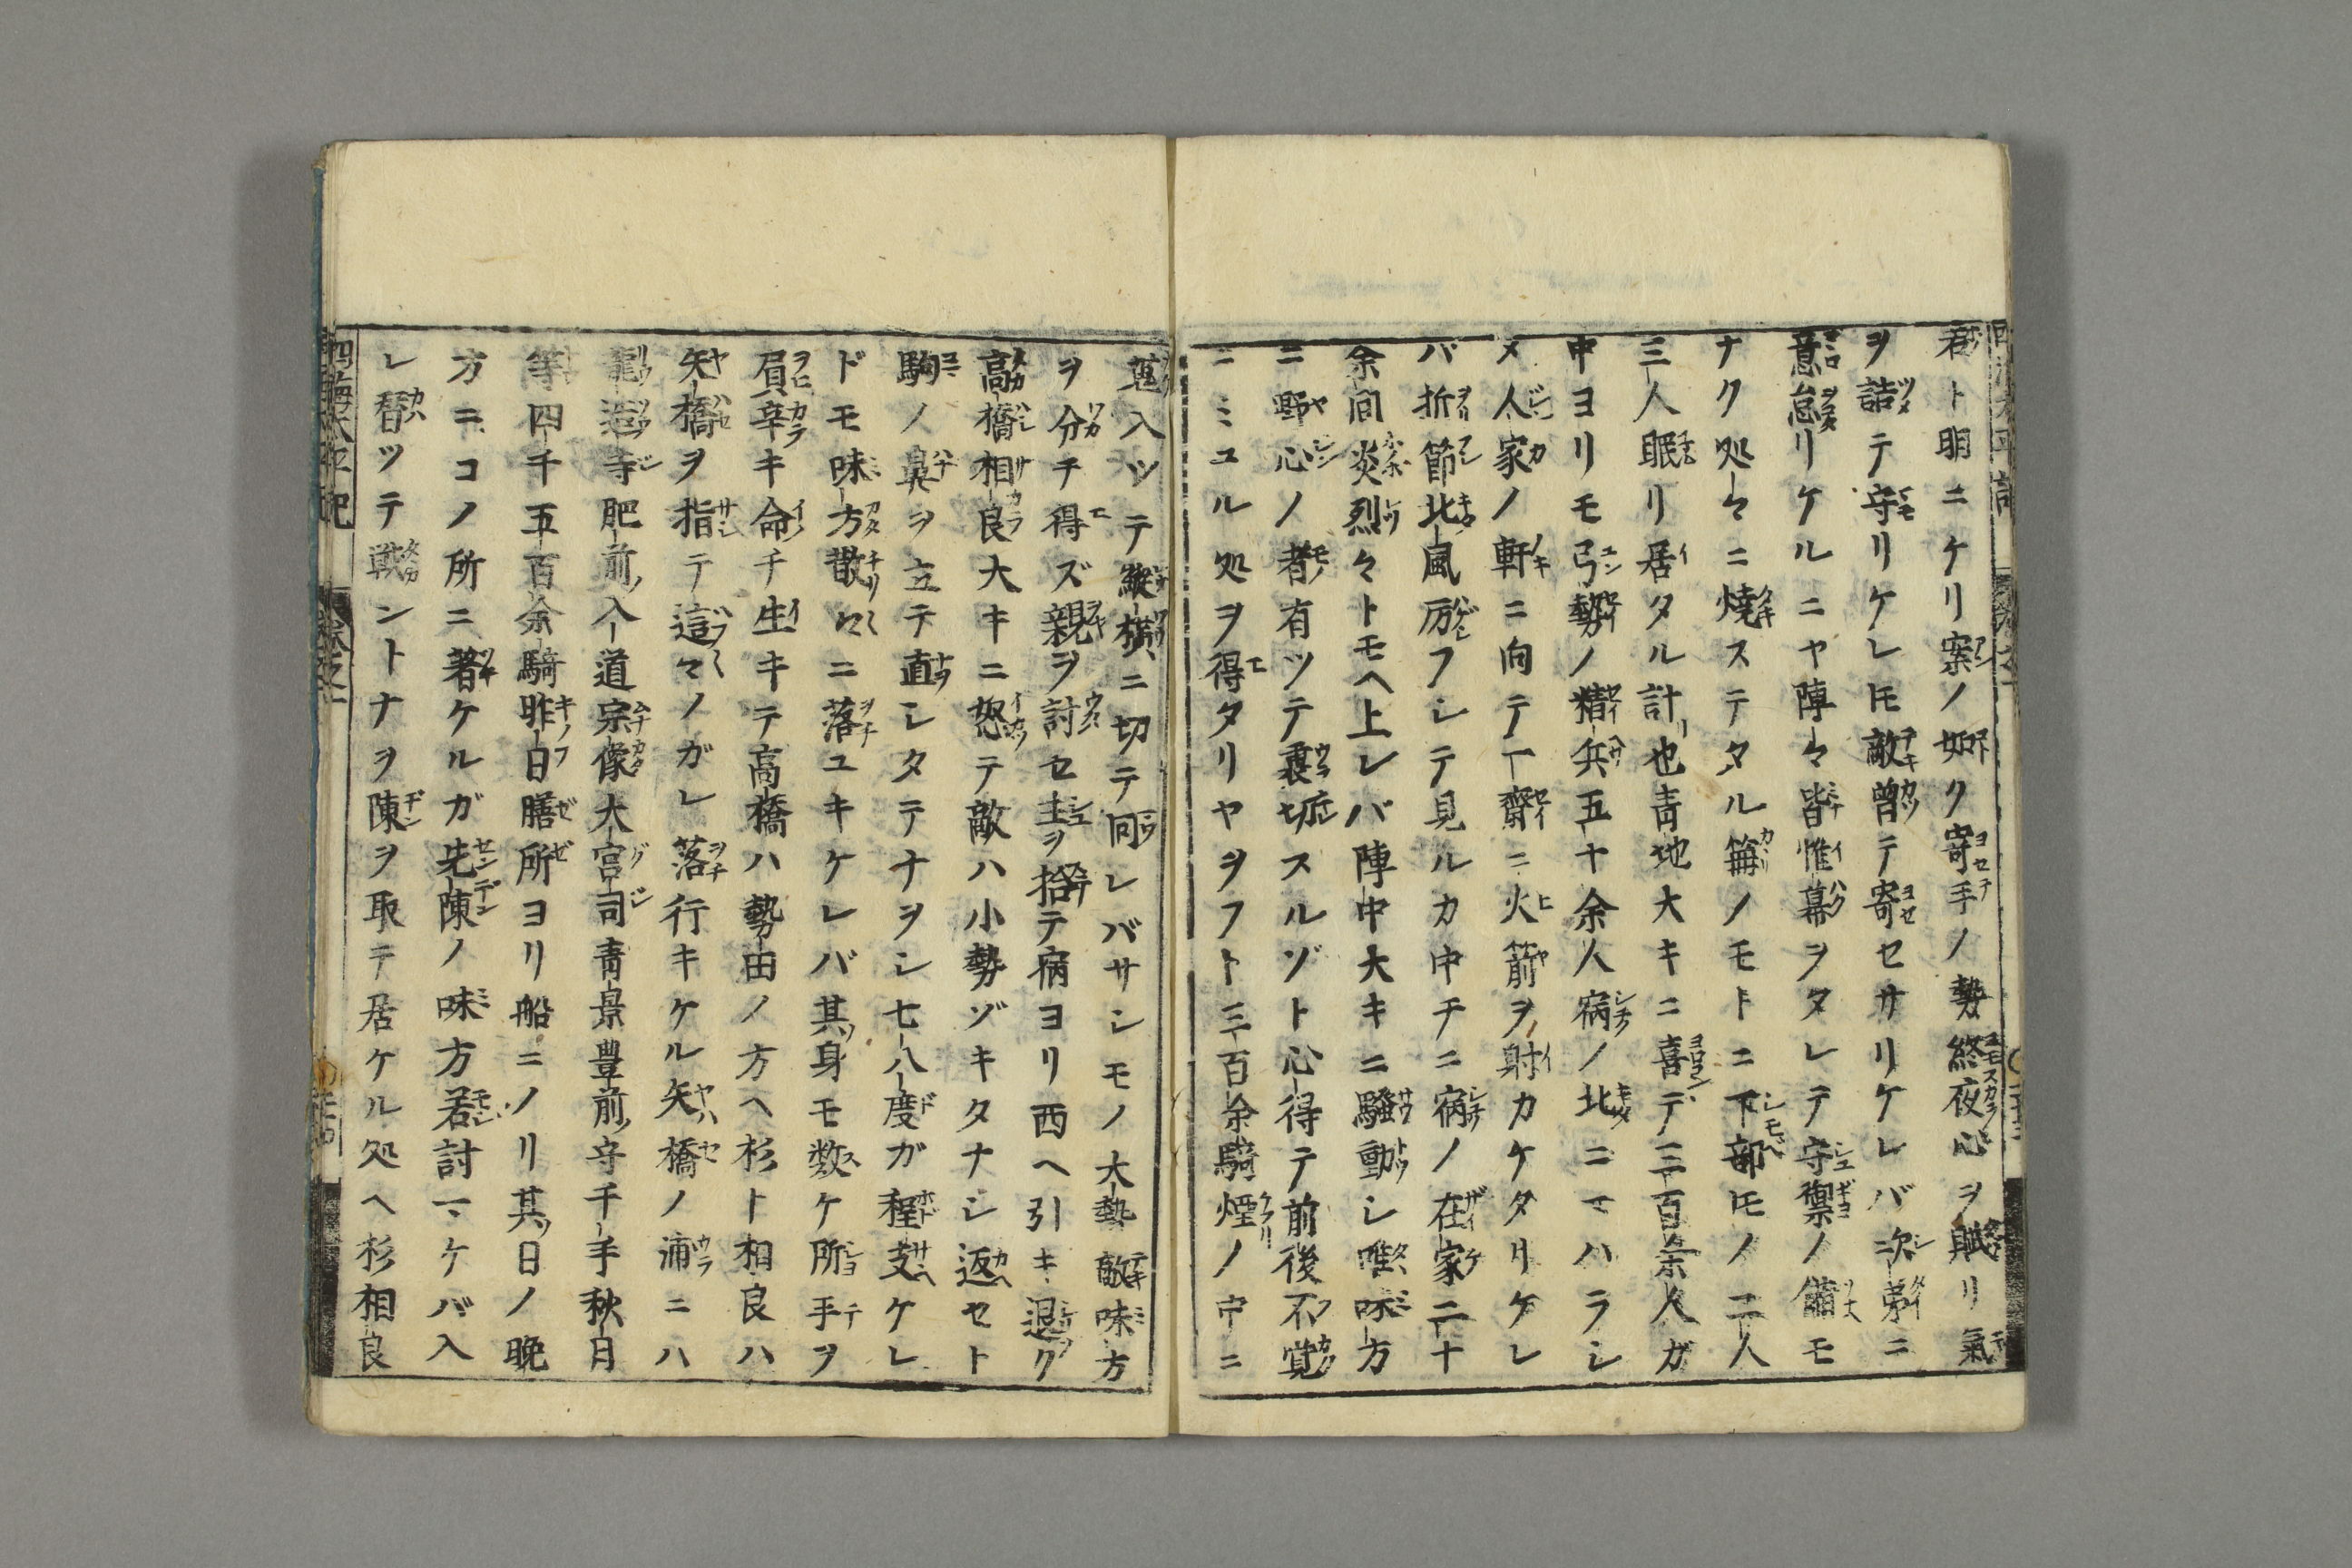 君ト明ニケリ案ノ如ク寄手ノ勢終夜心ヲ賦リ氣
ヲ詰テ守リケレ𪜈敵曽テ寄セサリケレバ次第ニ
意怠リケルニヤ陣々皆惟幕ヲタレテ守禦ノ備モ
ナク処々ニ焼ステタル篝ノモトニ下部𪜈ノ二人
三人眠リ居タル計也青地大キニ喜デ三百余人ガ
中ヨリモ弓勢ノ精兵五十余人病ノ北ニマハラシ
メ人家ノ軒ニ向テ一齋ニ火箭ヲ射カケタリケレ
バ折節北風厉フシテ見ルカ中チニ病ノ在家二十
余间炎烈々トモヘ上レバ陣中大キニ騒動シ唯味方
ニ野心ノ者有ツテ裏切スルゾト心得テ前後不覚
ニミユル処ヲ得タリヤヲフト三百余騎煙ノ中ニ
蒐入ツテ縦横ニ切テ同レバサシモノ大勢敵味方
ヲ分チ得ズ親ヲ討セ主ヲ捨テ病ヨリ西ヘ引キ退ク
高橋相良大キニ怒テ敵ハ小勢ゾキタナシ返セト
駒ノ鼻ヲ立テ直シタテナヲシ七八度ガ程支ケレ
ドモ味方散々ニ落ユキケレバ其身モ数ケ所手ヲ
屓辛キ命チ生キテ高橋ハ勢田ノ方ヘ杉ト相良ハ
矢橋ヲ指テ這々ノガレ落行キケル矢橋ノ浦ニハ
龍造寺肥前入道宗像大宮司青景豊前守千手秋月
等四千五百余騎昨日膳所ヨリ船ニノリ其日ノ晩
方ニコノ所ニ著ケルガ先陳ノ味方若討マケバ入
レ替ツテ戦ントナヲ陳ヲ取テ居ケル処ヘ杉相良
四海太平記